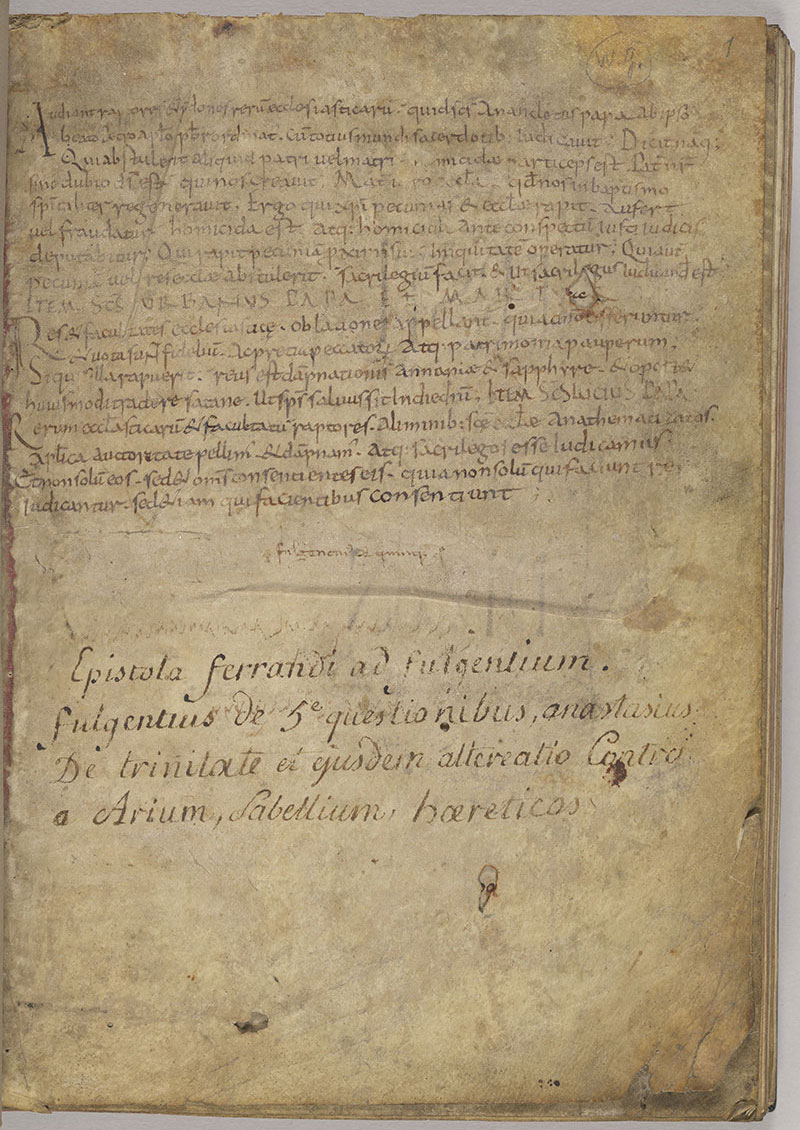 W. 9.
1
Audiant raptores & ydonei rerū ecclesiasticarū. quid scs Anacletus papa ab ipso
beato ordinat. Cū totius mundi sacerdotib; iudicavit. Dicit naq;
Qui abstulerit aliquid patri vel matri. particeps est. Pat nr
sine dubio ds est qui nos creavit. Mat qđ nos in baptismo
spiritaliter regeneravit. Ergo qui xpi pecunias & eccłae rapit. Aufert
vel fraudatur homicida est. Atq; homicida Ante conspectū iusti iudicis
deputabitur. Qui rapit pecuniā proximi sui. Iniquitatē operatur. Qui aut
pecuniā vel res ecclae abstulerit. Sacrilegiū facit. & ut sacrilegus iudicand est
ITEM. SCS URBANUS PAPA ET MART
Res & facultates ecclesiasticę. oblationes appellant. quia dno offeruntur.
& vota st̄ fideliū. Ac pretia peccatorū. Atq; patrimonia pauperum.
Siquis illa rapuerit. reus est dāpnationis Annaniæ & sapphyre. & oport&
huiusmodi tradere satane. Ut sps salvus sit In die dni. ITEM SCS LUCIUS PAPA
Rerum ecclesiasticarū & facultatū raptores. A liminib; scę ecclae Anathematizatos.
Aplica auctoritate pellim'. & dāpnam'. Atq; sacrilegos esse Iudicamus.
Et non solū eos. sed & om̄s consentientes eis. quia non solū qui faciunt rei
Iudicantur. sed & iam qui facientibus consentiunt
fulgencius de quinq; q
Epistola ferrandi ad fulgentium.
fulgentius de 5e questionibus, anastasius
De trinitate et ejusdem altercatio Contra
a Arium, Sabellium, hœreticos